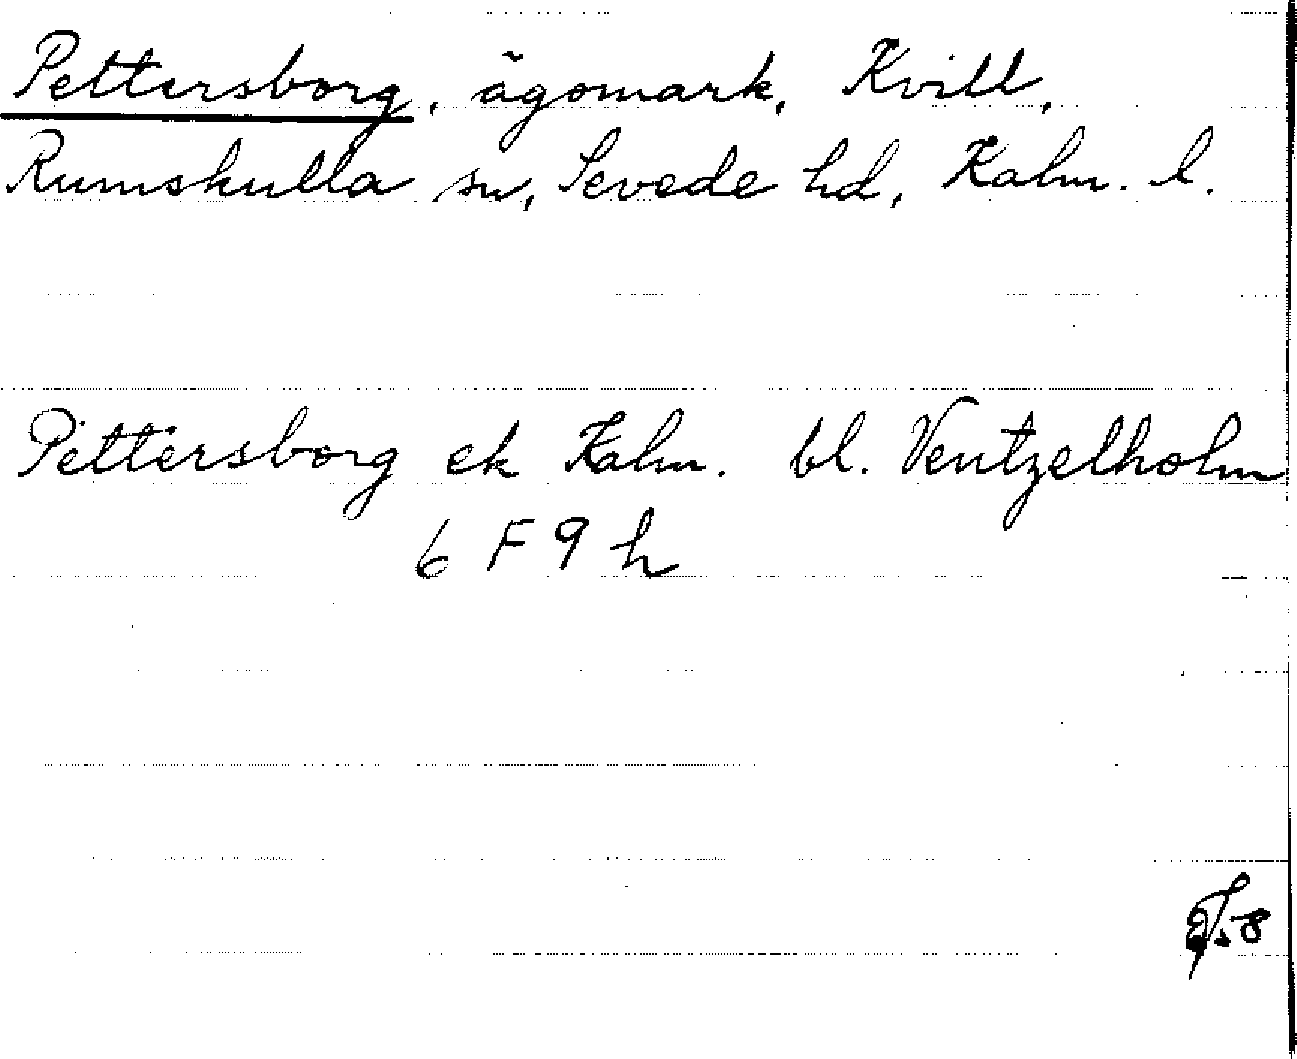 Pettersborg, ägomark, Kvill,
Rumskulla sn, Sevede hd, Kalm. l.
Pettersborg ek Kalm. bl. Ventzelholm
6 F 9 h